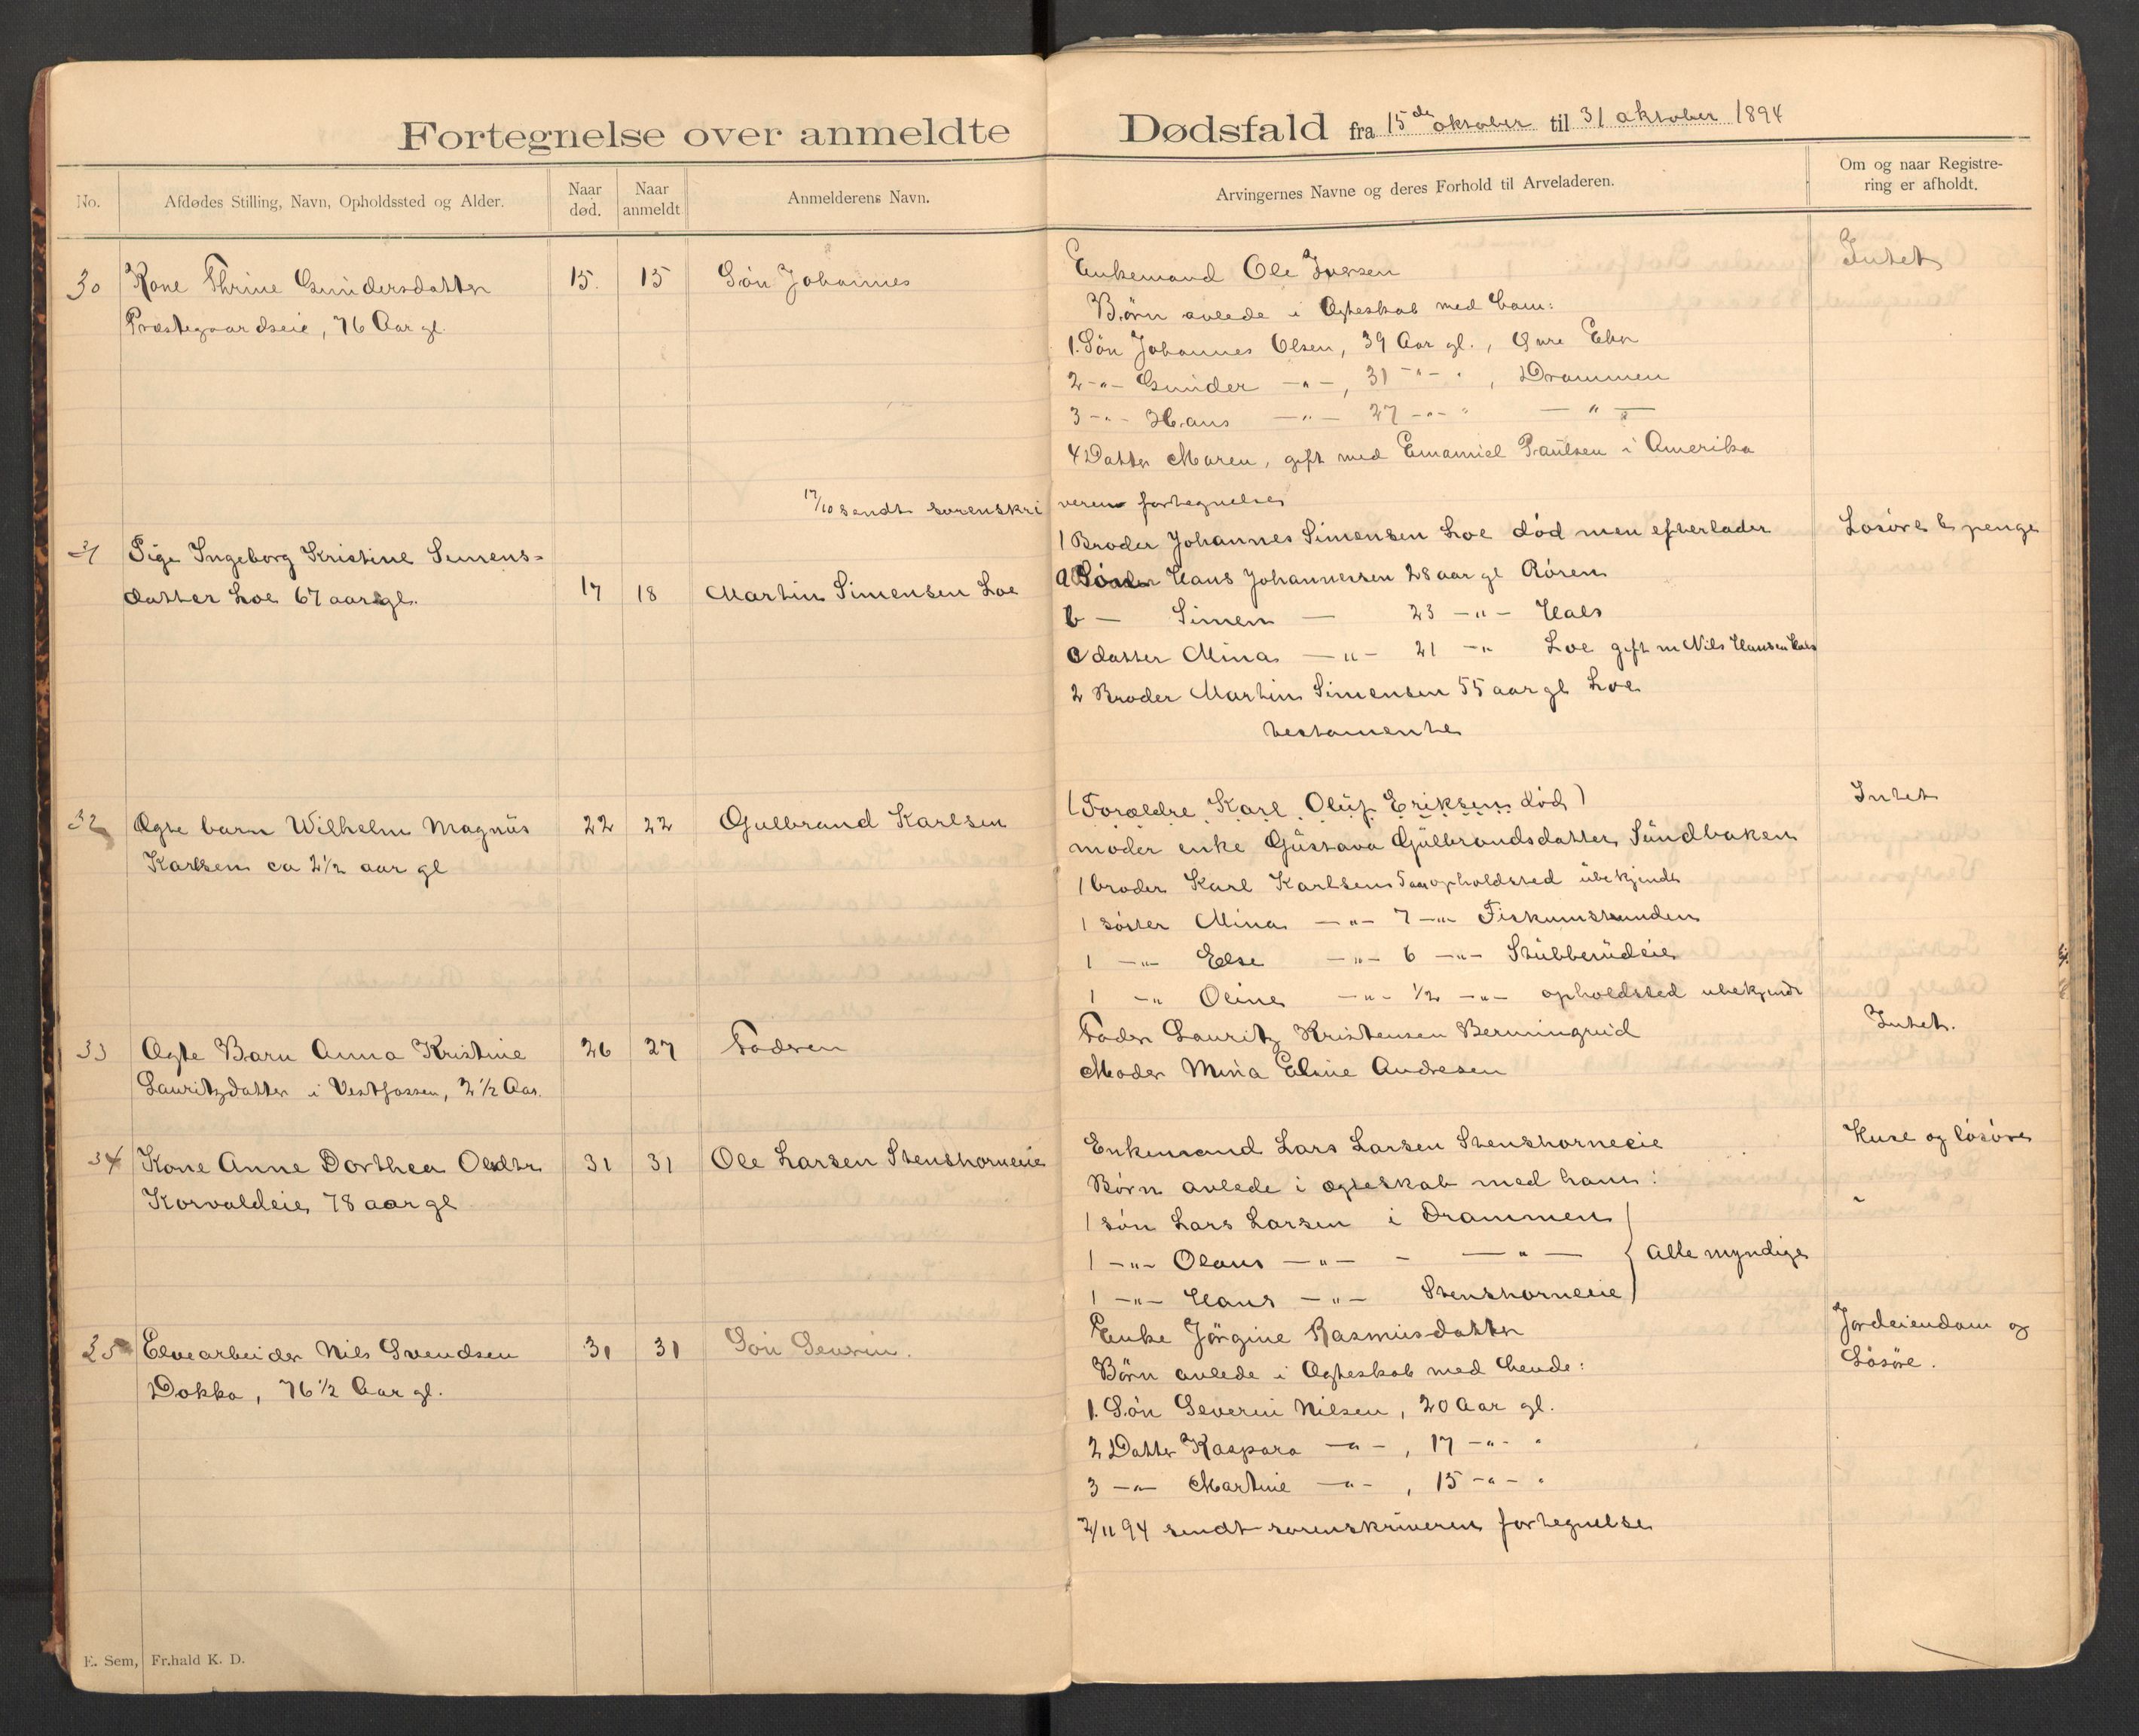 Fortegnelse over anmeldte Dødsfald fra 15de oktober til 31 oktober 1894
No.
Afdødes Stilling, Navn, Opholdssted og Alder.
Naar død.
Naar anmeldt
Anmelderens Navn.
Arvingernes Navne og deres Forhold til Arveladeren.
Om og naar Registre-
ring er afholdt.
30 Kone Thrine Gundersdatter 15. 15 Søn Johannes
Præstegaardseie, 76 Aar gl.
Enkemand Ole Iversen Intet
Børn avlede i Ægteskab med ham:
1. Søn Johannes Olsen, 39 Aar gl., Øvre Eker
2 -"- Gunder -"-, 31 -"- ", Drammen
3 -"- Hans -"- 27 -"- " -"-
4 Datter Maren, gift med Emanuel Paulsen i Amerika
17/10 sendt sorenskriveren fortegnelse
31 Pige Ingeborg Kristine Simens-
datter Loe 67 aar gl. 17 18 Martin Simensen Loe
1 Broder Johannes Simensen Loe død men efterlader Løsøre & penge
a Sønn Hans Johannessen 28 aar gl Røren
b - Simen - 23 -"- Hals
c datter Mina -"- 21 -"- Loe gift m Nils Hansen Hals
2 Broder Martin Simensen 55 aar gl Loe
testamente
32 Ægte barn Wilhelm Magnus 22 22 Gulbrand Karlsen
Karlsen ca 2½ aar gl
(Forældre Karl Oluf Eriksen død) Intet
moder enke Gustava Gulbrandsdatter Sundbaken
1 broder Karl Karlsen 5 aar opholdsted ubekjendt
1 søster Mina -"- 7 -"- Fiskum
1 -"- Else -"- 6 -"- Stubberudeie
1 -"- Oline -"- ½ -"- opholdsted ubekjendt
33 Ægte Barn Anna Kristine 26 27 Faderen
Lauritzdatter i Vestfossen, 2½ Aar.
Fader Lauritz Kristensen Intet.
Moder Mina Eline Andresen
34 Kone Anne Dorthea Olsdtr 31 31 Ole Larsen Stenshorneeie
Korvaldeie 78 aar gl
Enkemand Lars Larsen Stenshorneeie Huse og løsøre
Børn avlede i ægteskab med ham:
1 søn Lars Larsen i Drammen
1 -"- Olaus -"- - -"- Alle myndige
1 -"- Hans -"- Stenshorneeie
35 Elvearbeider Nils Svendsen 31 31 Søn Severin.
Dokka, 76½ Aar gl.
Enke Jørgine Rasmusdatter Jordeiendom og
Løsøre.
Børn avlede i Ægteskab med hende:
1. Søn Severin Nilsen, 20 Aar gl.
2 Datter Kaspara -"-, 17 -"- "
3 -"- Martine -"-, 15 -"- "
2/11 94 sendt sorenskriveren fortegnelse
E. Sem, Fr.hald K. D.